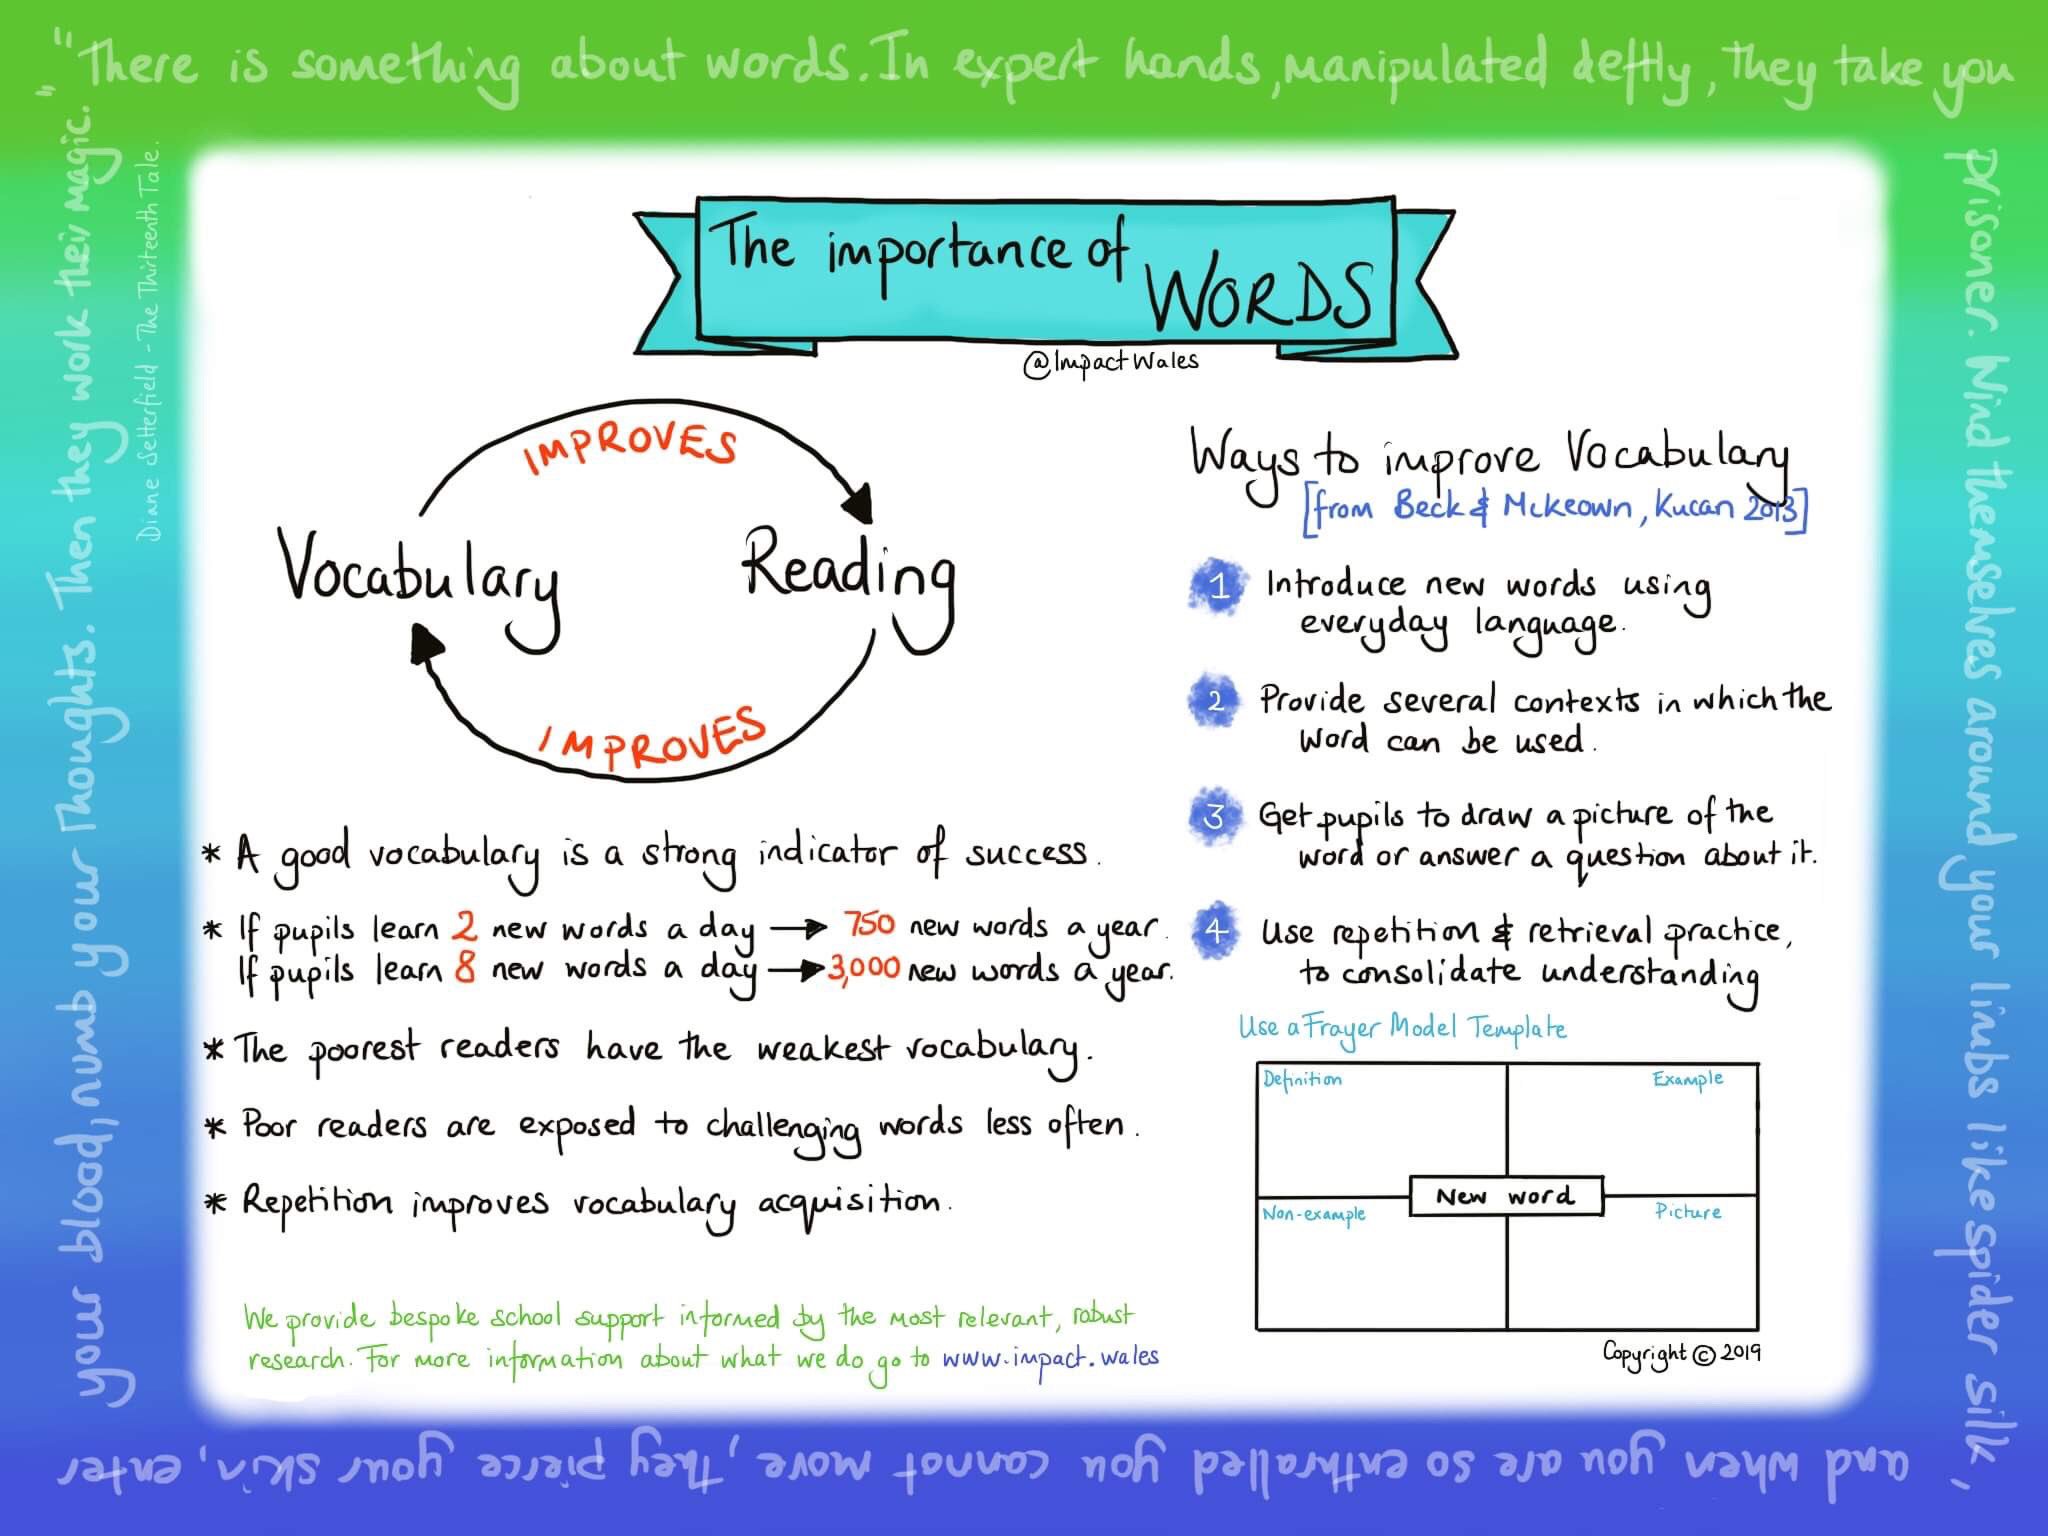 "There is something about words. In expert hands, manipulated deftly, they take you
prisoner. Wind themselves around your limbs like spider silk,
and when you are so enthralled you cannot move, they pierce your skin, enter
your blood, numb your thoughts. Then they work their magic."
Diane Setterfield - The Thirteenth Tale.
The importance of
WORDS
@ImpactWales
IMPROVES
Vocabulary Reading
IMPROVES
* A good vocabulary is a strong indicator of success.
* If pupils learn 2 new words a day → 750 new words a year.
If pupils learn 8 new words a day → 3,000 new words a year.
* The poorest readers have the weakest vocabulary.
* Poor readers are exposed to challenging words less often.
* Repetition improves vocabulary acquisition.
We provide bespoke school support informed by the most relevant, robust
research. For more information about what we do go to www.impact.wales
Ways to improve Vocabulary
[from Beck & McKeown, Kucan 2013]
1 Introduce new words using
everyday language.
2 Provide several contexts in which the
word can be used.
3 Get pupils to draw a picture of the
word or answer a question about it.
4 Use repetition & retrieval practice,
to consolidate understanding
Use a Frayer Model Template
Definition Example
New word
Non-example Picture
Copyright © 2019